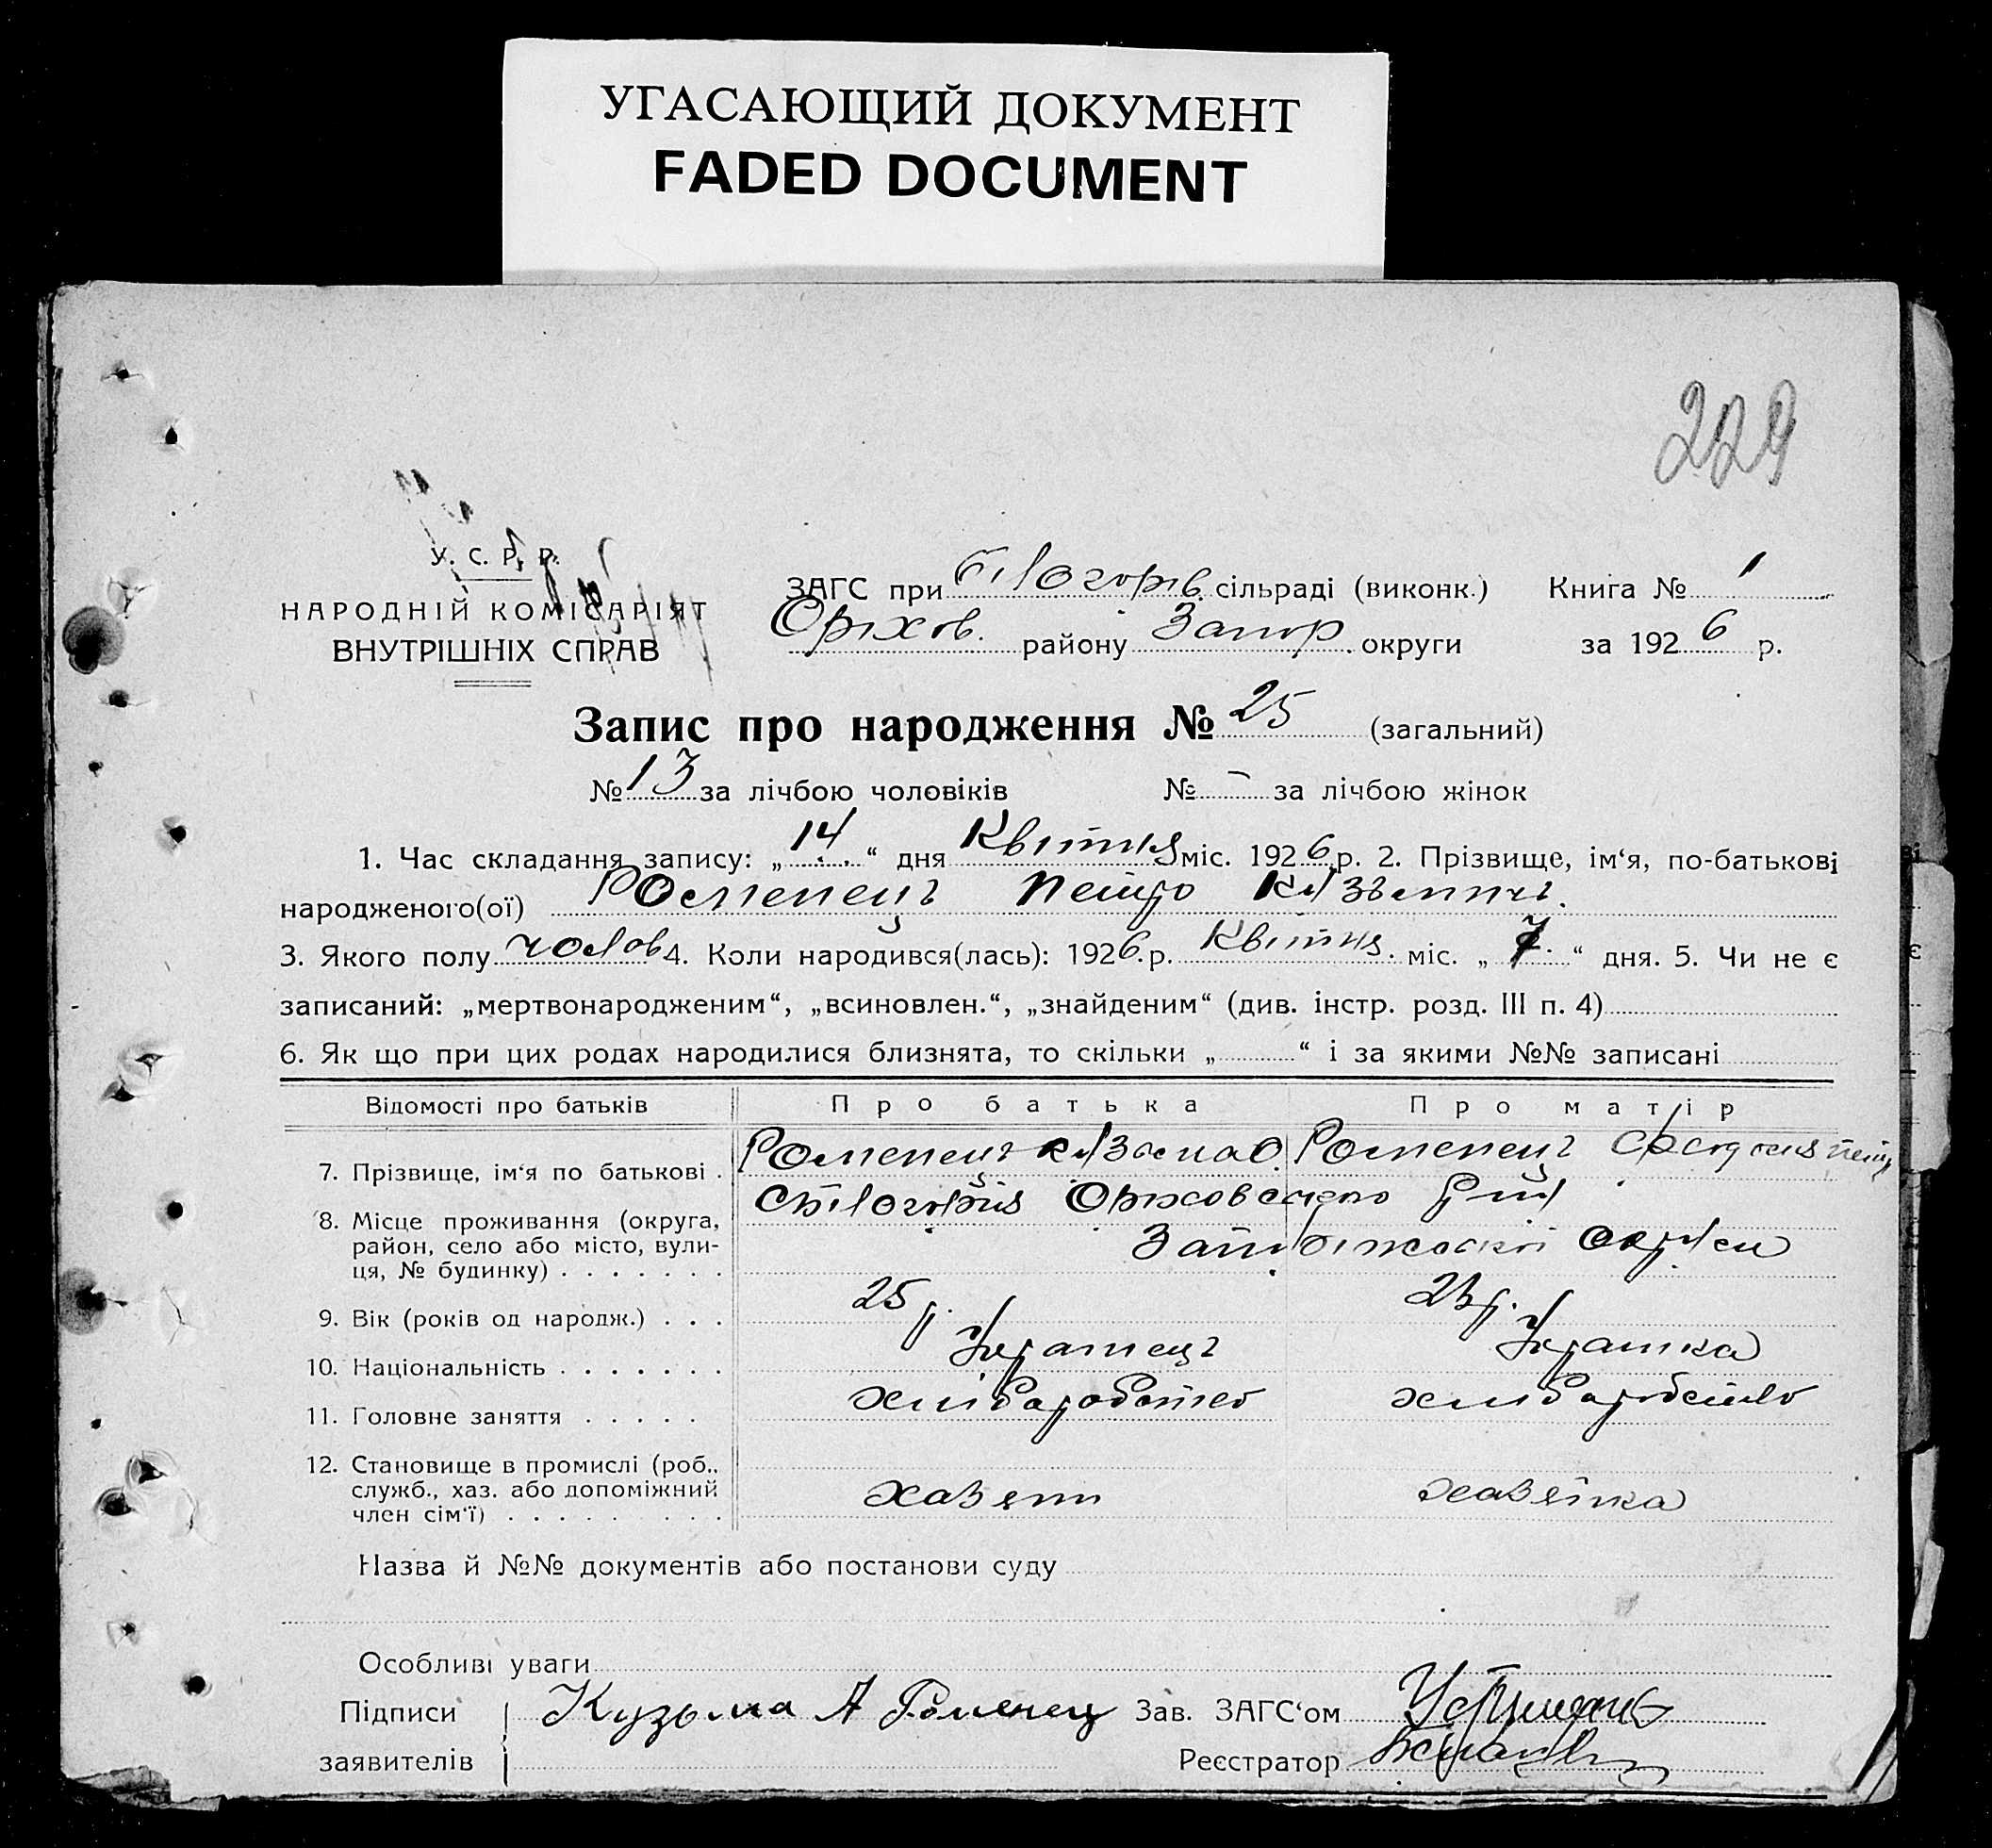 УГАСАЮЩИЙ ДОКУМЕНТ
FADED DOCUMENT
229
У. С. Р. Р.
НАРОДНІЙ КОМІСАРІЯТ
ВНУТРІШНІХ СПРАВ
ЗАГС при Білогорів. сільраді (виконк.) Книга № 1
Оріхов. району Запор. округи за 1926 р.
Запис про народження № 25 (загальний)
№ 13 за лічбою чоловіків № – за лічбою жінок
1. Час складання запису: „14“ дня Квітня міс. 1926 р. 2. Прізвище, ім‘я, по-батькові
народженого(ої) Роменець Петро Кузьмичь.
3. Якого полу чолов 4. Коли народився(лась): 1926.р. Квітня. міс. „7.“ дня. 5. Чи не є
записаний: „мертвонародженим“, „всиновлен.“, „знайденим“ (див. інстр. розд. III п. 4)
6. Як що при цих родах народилися близнята, то скільки „ “ і за якими №№ записані
Відомості про батьків Про батька Про матір
7. Прізвище, ім‘я по батькові . Роменець Кузьма О. Роменець
8. Місце проживання (округа, район, село або місто, вулиця, № будинку) . . . . . . . с Білогорія Оріховського
Запоріжської округи
9. Вік (років од народж.) . . . 25 р. 23 р.
10. Національність . . . . . . . Українець Українка
11. Головне заняття . . . . . хліборобство хліборобство
12. Становище в промислі (роб.,
служб., хаз. або допоміжний
член сім‘ї) . . . . . . . . . хазяїн хазяйка
Назва й №№ документів або постанови суду
Особливі уваги
Підписи Кузьма А Роменец Зав. ЗАГС‘ом
заявителів Реєстратор